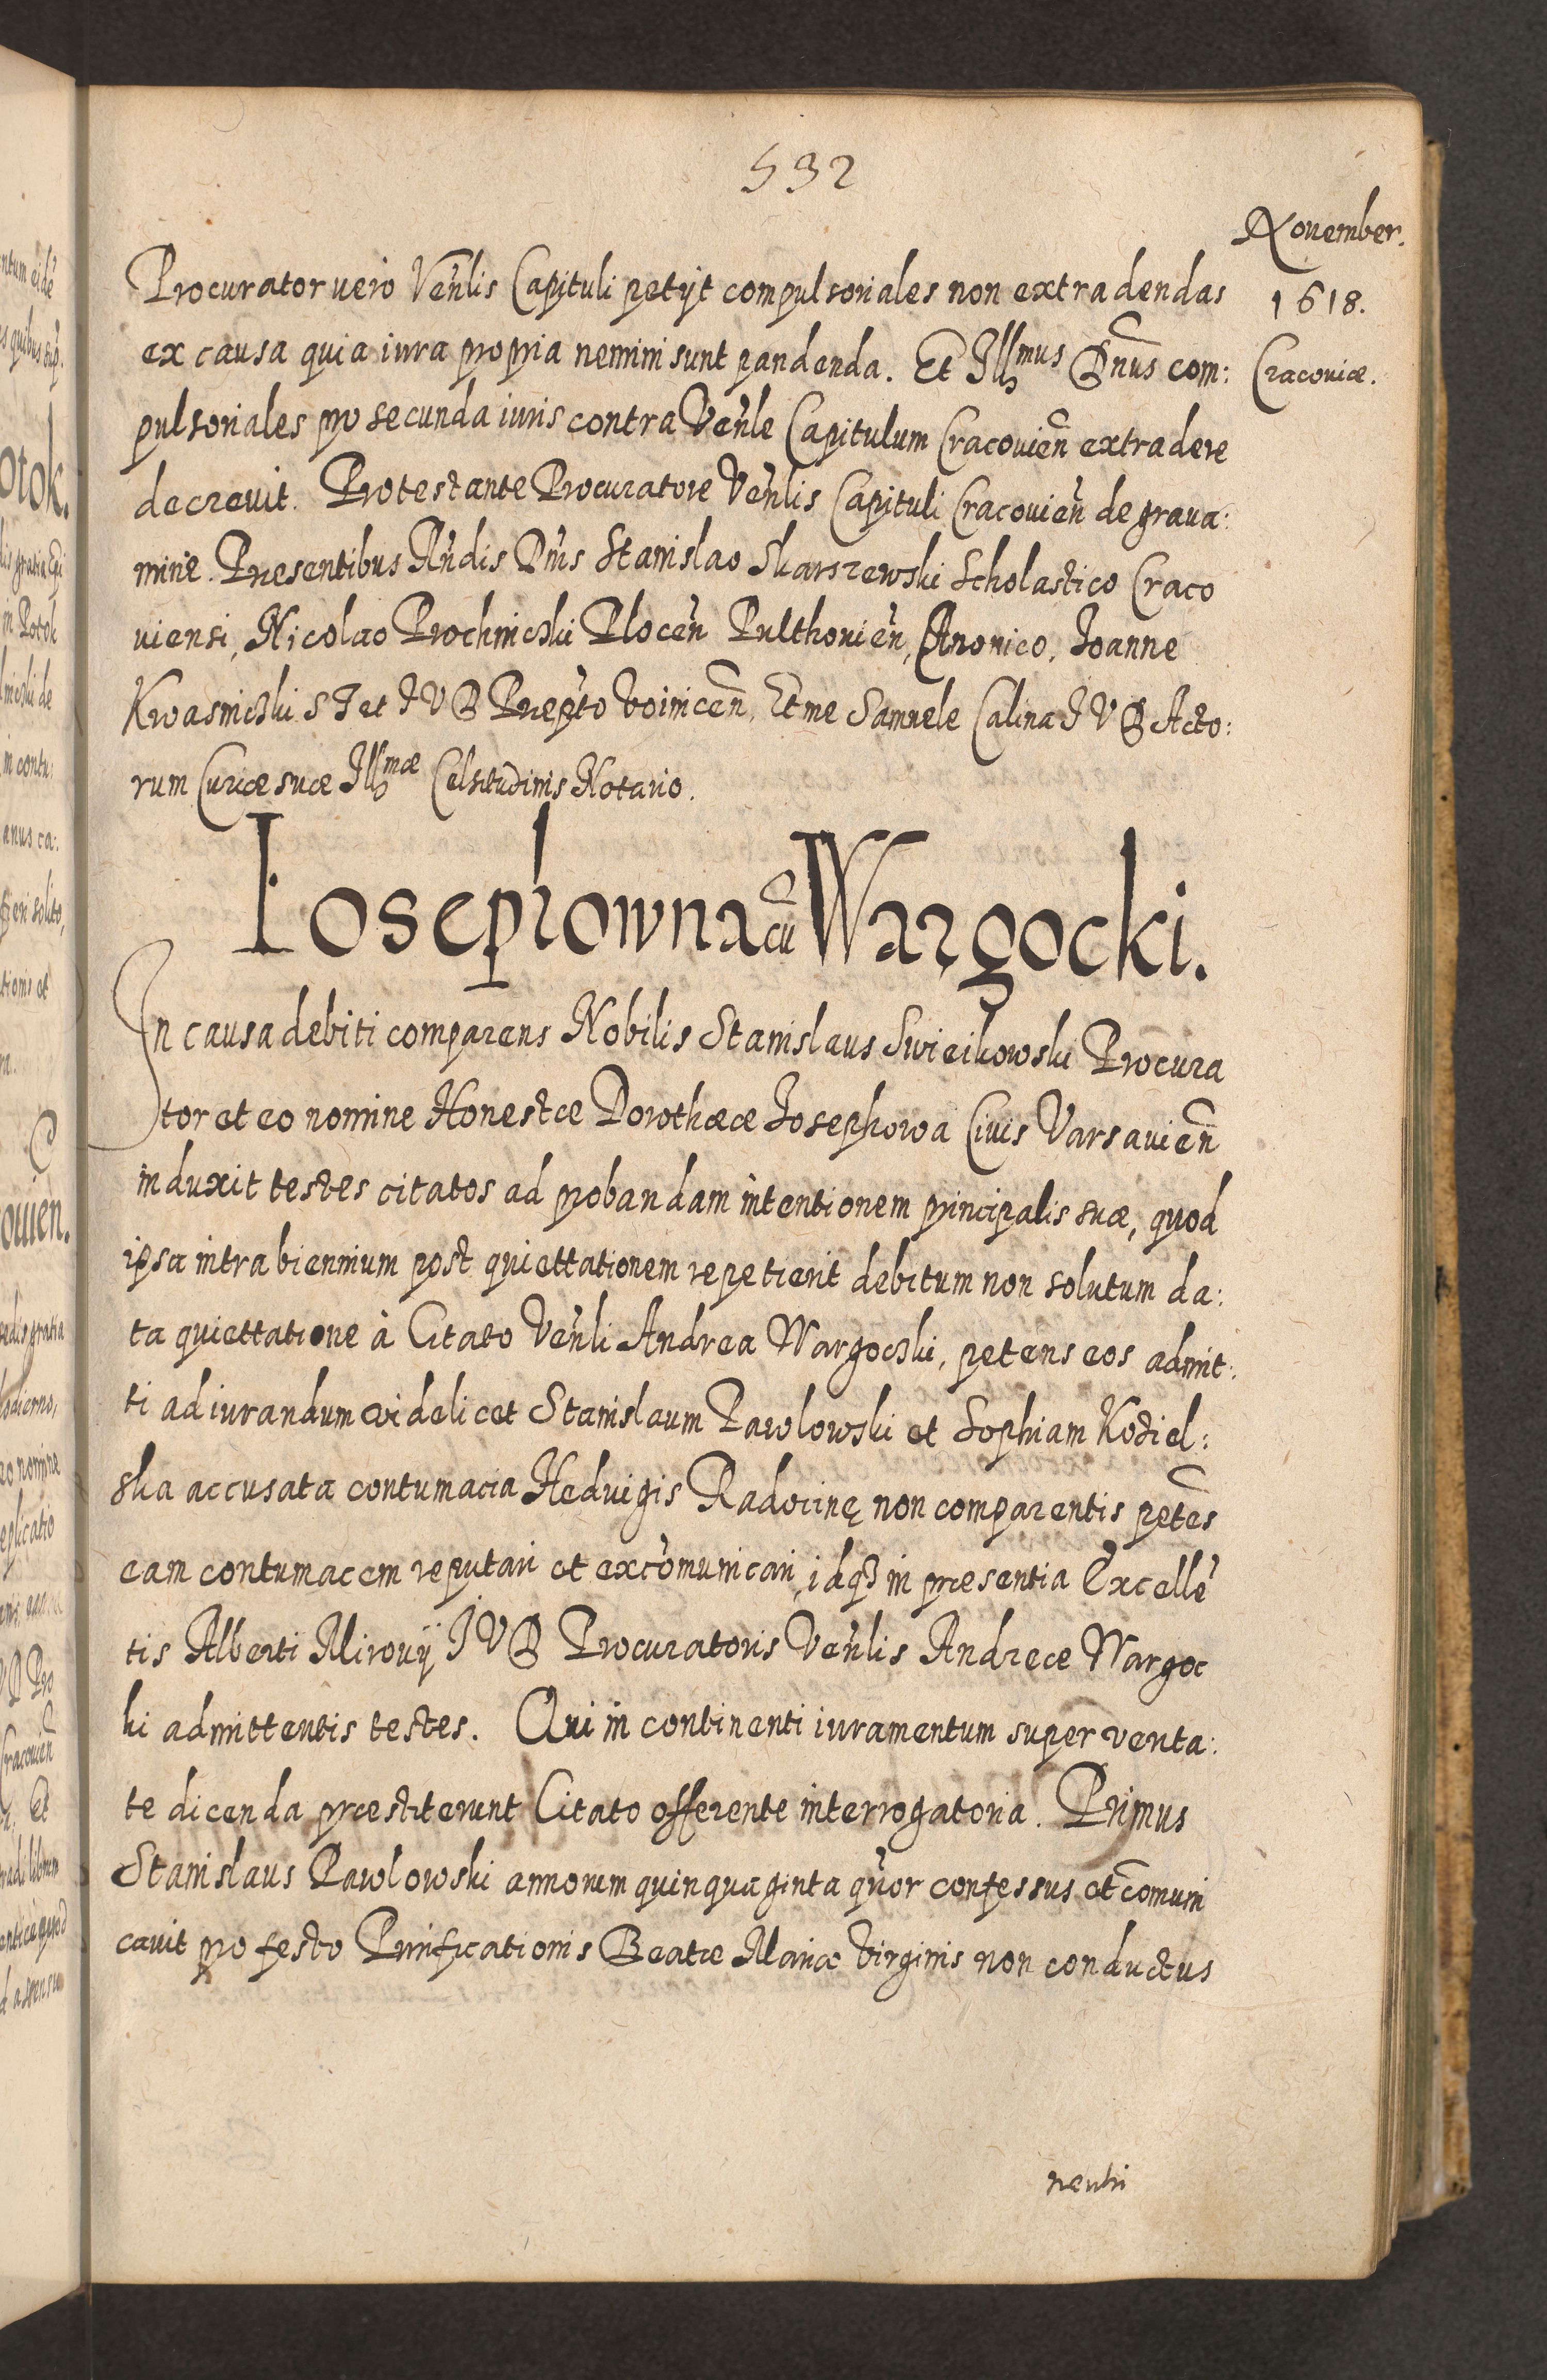 532
November.
1618.
Cracoviæ.
Procurator vero Venlis Capituli petijt compulsoriales non extradendas
ex causa quia iura propria nemini sunt pandenda. Et Illmus Dnus com:
pulsoriales pro secunda iuris contra Venle Capitulum Cracovien extradere
decrevit. Protestante Procuratore Venlis Capituli Cracovien de grava:
mine. Presentibus Rndis Dnis Stanislao Skarszewski Scholastico Craco
viensi, Nicolao Prochnicki Plocen Pulthovien, Canonico, Joanne
Kwasnicki S T et I V D Præpto Voinicen, Et me Samuele Calina I V D Acto:
rum Curiæ suæ Illmæ Celsitudinis Notario.
Iosephowna cu Wargocki.
In causa debiti comparens Nobilis Stanislaus Swieikowski Procura
tor et eo nomine Honestæ Dorotheæ Josephowa Civis Varsavien
induxit testes citatos ad probandam intentionem principalis suæ, quod
ipsa intra biennium post quiettationem repetierit debitum non solutum da:
ta quiettatione à Citato Venli Andrea Wargocki, petens eos admit:
ti ad iurandum videlicet Stanislaum Pawlowski et Sophiam Koziel:
ska accusata contumacia Hedvigis Radocinę non comparentis petes
eam contumacem reputari et excomunicari, idq3 in præsentia Excelle
tis Alberti Mirovij I V D Procuratoris Venlis Andreæ Wargoc
ki admittentis testes. Qui in continenti iuramentum super verita:
te dicenda præstiterunt Citato offerente interrogatoria. Primus
Stanislaus Pawlowski annorum quinquaginta quor confessus et comuni
cavit pro festo Purificationis Beatæ Mariæ Virginis non conductus
neutri